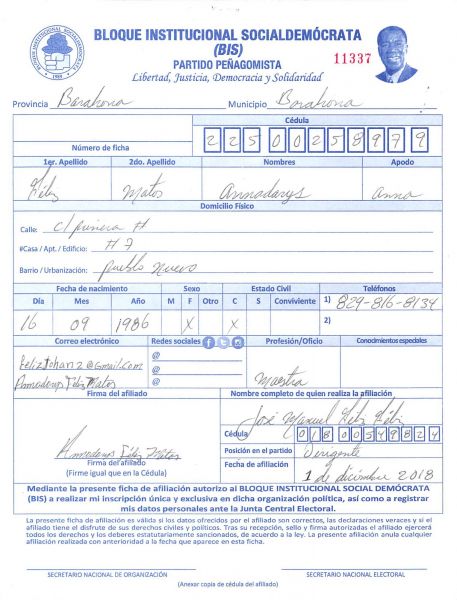 BLOQUE INSTITUCIONAL SOCIALDEMÓCRATA
(BIS)
PARTIDO PEÑAGOMISTA
11337
Libertad, Justicia, Democracia y Solidaridad
BLOQUE INSTITUCIONAL SOCIALDEMOCRATA
Provincia Barahona Municipio Barahona
Cédula
Número de ficha 22500258979
1er. Apellido 2do. Apellido Nombres Apodo
Féliz Matos Annadarys Anna
Domicilio Físico
Calle: C/ primera #
#Casa / Apt. / Edificio: # 7
Barrio / Urbanización: Pueblo Nuevo
Fecha de nacimiento Sexo Estado Civil Teléfonos
Día Mes Año M F Otro C S Conviviente 1) 829-816-8134
16 09 1986 X X 2)
Correo electrónico Redes sociales Profesión/Oficio Conocimientos especiales
felizJohan2@Gmail.com @
@
@
Maestra
Firma del afiliado Nombre completo de quien realiza la afiliación
José Manuel Féliz Féliz
Cédula 01800349824
Posición en el partido Dirigente
Firma del afiliado
(Firme igual que en la Cédula)
Fecha de afiliación 1 de diciembre 2018
Mediante la presente ficha de afiliación autorizo al BLOQUE INSTITUCIONAL SOCIAL DEMÓCRATA
(BIS) a realizar mi inscripción única y exclusiva en dicha organización política, así como a registrar
mis datos personales ante la Junta Central Electoral.
La presente ficha de afiliación es válida si los datos ofrecidos por el afiliado son correctos, las declaraciones veraces y si el
afiliado tiene el disfrute de sus derechos civiles y políticos. Tras su recepción, sello y firma autorizadas el afiliado ejercerá
todos los derechos y los deberes estatutariamente sancionados, de acuerdo a la ley. La presente afiliación anula cualquier
afiliación realizada con anterioridad a la fecha que aparece en esta ficha.
SECRETARIO NACIONAL DE ORGANIZACIÓN SECRETARIO NACIONAL ELECTORAL
(Anexar copia de cédula del afiliado)